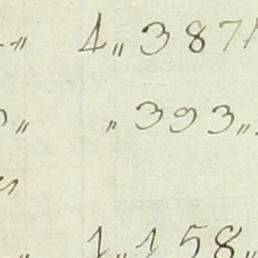 4„387
„393„
1„158„